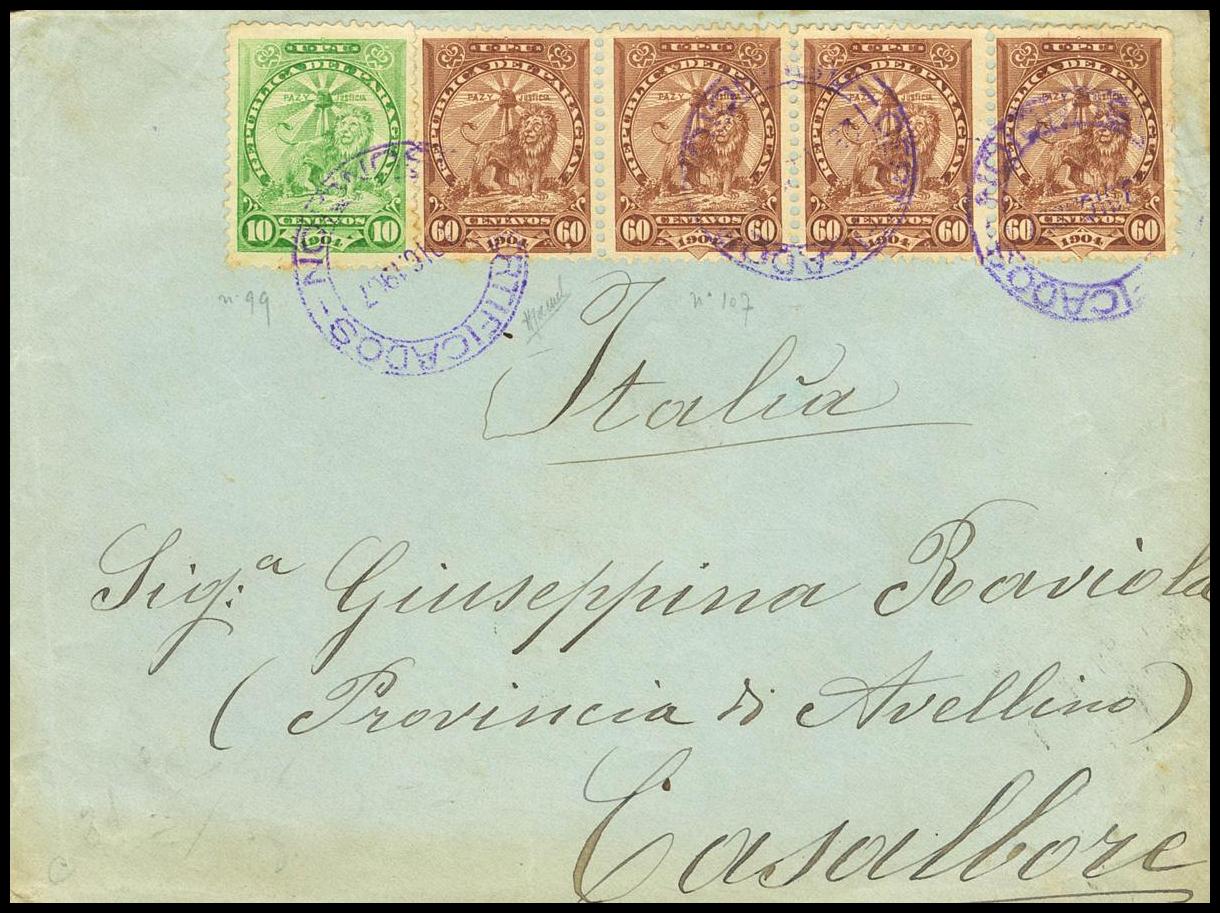 U.P.U U.P.U U.P.U U.P.U U.P.U
REPUBLICA DEL PARAGUAY REPUBLICA DEL PARAGUAY REPUBLICA DEL PARAGUAY REPUBLICA DEL PARAGUAY REPUBLICA DEL PARAGUAY
PAZ Y JUSTICIA PAZ Y JUSTICIA PAZ Y JUSTICIA PAZ Y JUSTICIA PAZ Y JUSTICIA
10 CENTAVOS 10 60 CENTAVOS 60 60 CENTAVOS 60 60 CENTAVOS 60 60 CENTAVOS 60
1904 1904 1904 1904 1904
CERTIFICADOS
DIC. 1907
n° 99
n° 107
Italia
Sig.ª Giuseppina Raviola
(Provincia di Avellino)
Casalbore